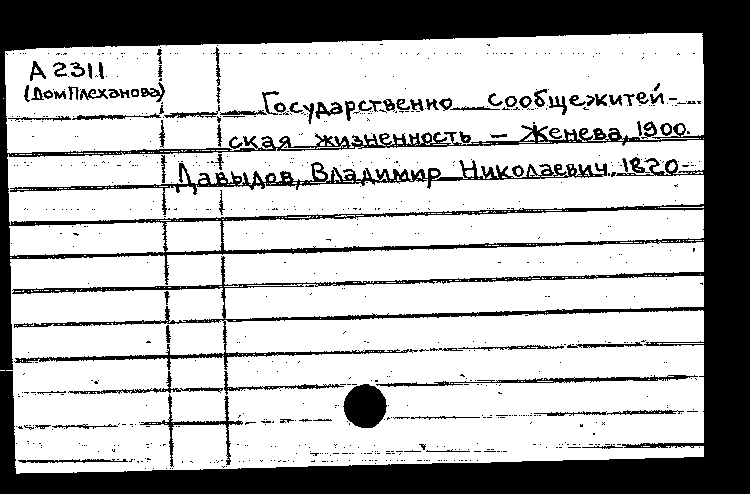 А 2311
(Дом Плеханова)
Государственно сообщежитей-
ская жизненность – Женева, 1900.
Давыдов, Владимир Николаевич, 1820-